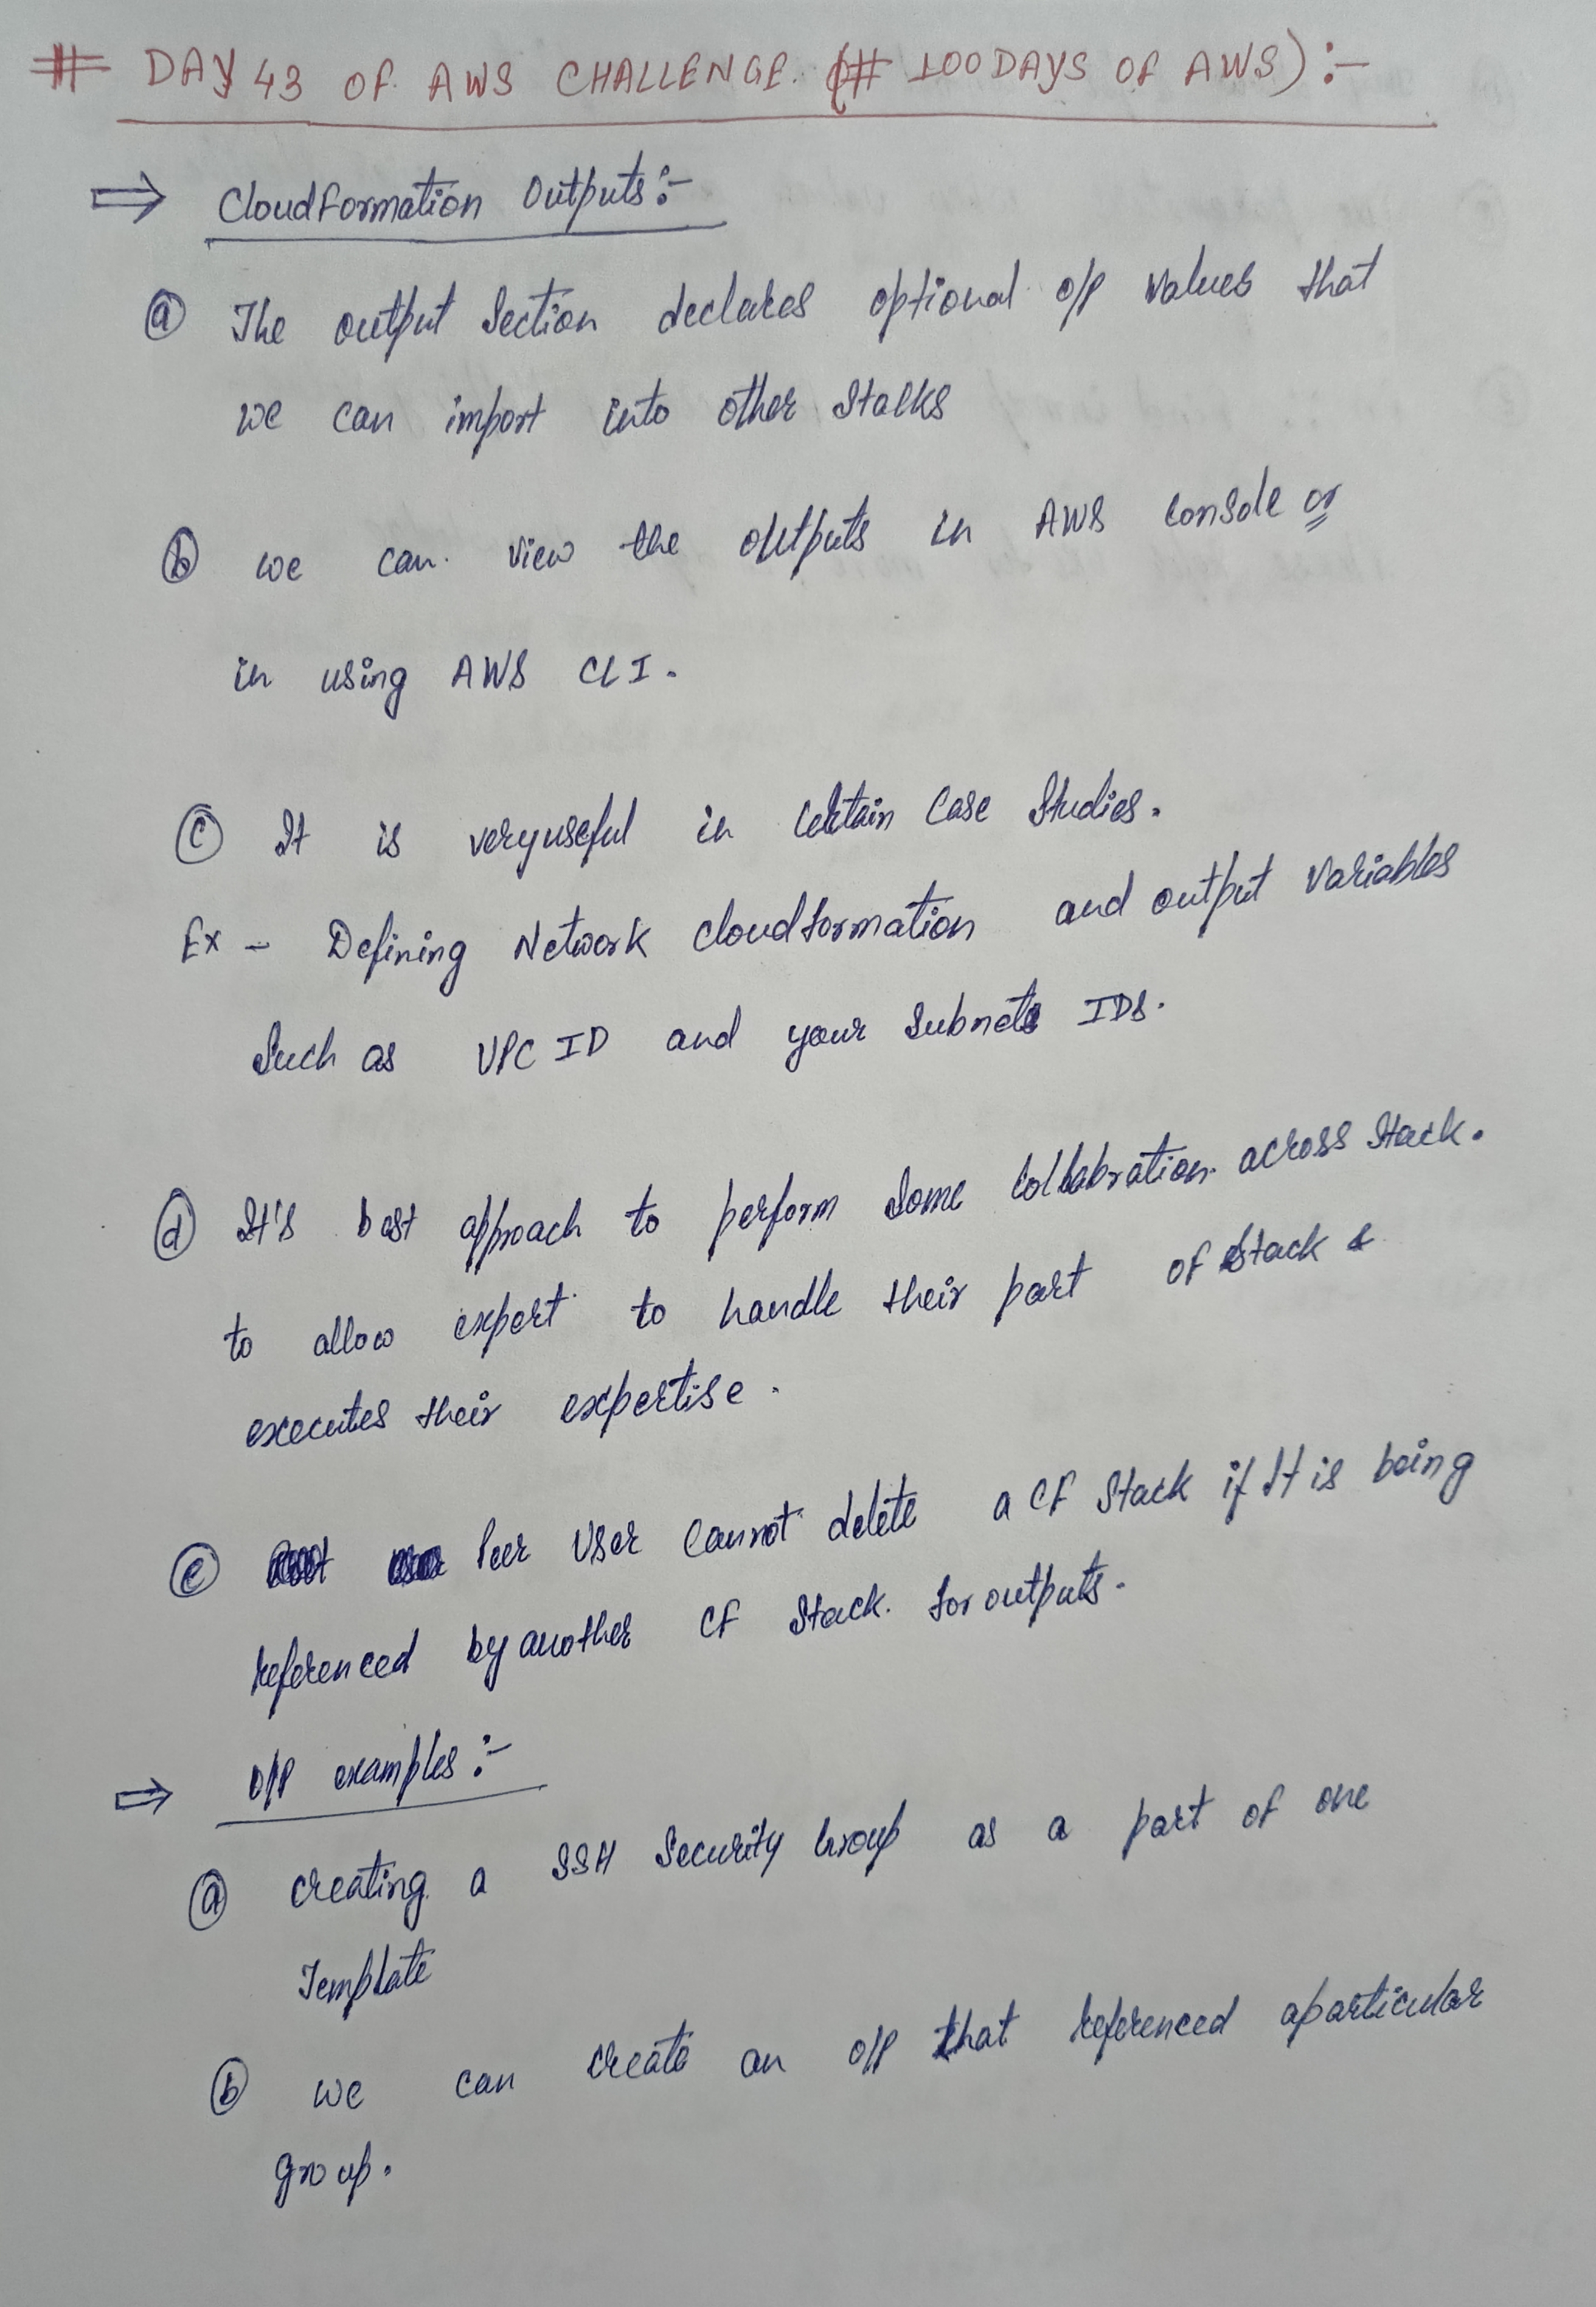 # DAY 43 OF AWS CHALLENGE. (# 100DAYS OF AWS) :-
⇒ Cloudformation Outputs :-
ⓐ The output Section declares optional o/p values that
we can import into other Stalks
ⓑ we can view the outputs in AWS console or
in using AWS CLI.
ⓒ It is very useful in Certain Case Studies.
Ex - Defining Network cloudformation and output Variables
Such as VPC ID and your Subnets IDS.
ⓓ It's best approach to perform Some Collabration across Stack.
to allow expert to handle their part of Stack &
executes their expertise.
ⓔ User Cannot delete a CF Stack if It is being
referenced by another CF Stack. for outputs.
⇒ O/P examples :-
ⓐ creating a SSH Security Group as a part of one
Template
ⓑ we can create an O/P that referenced a particular
group.